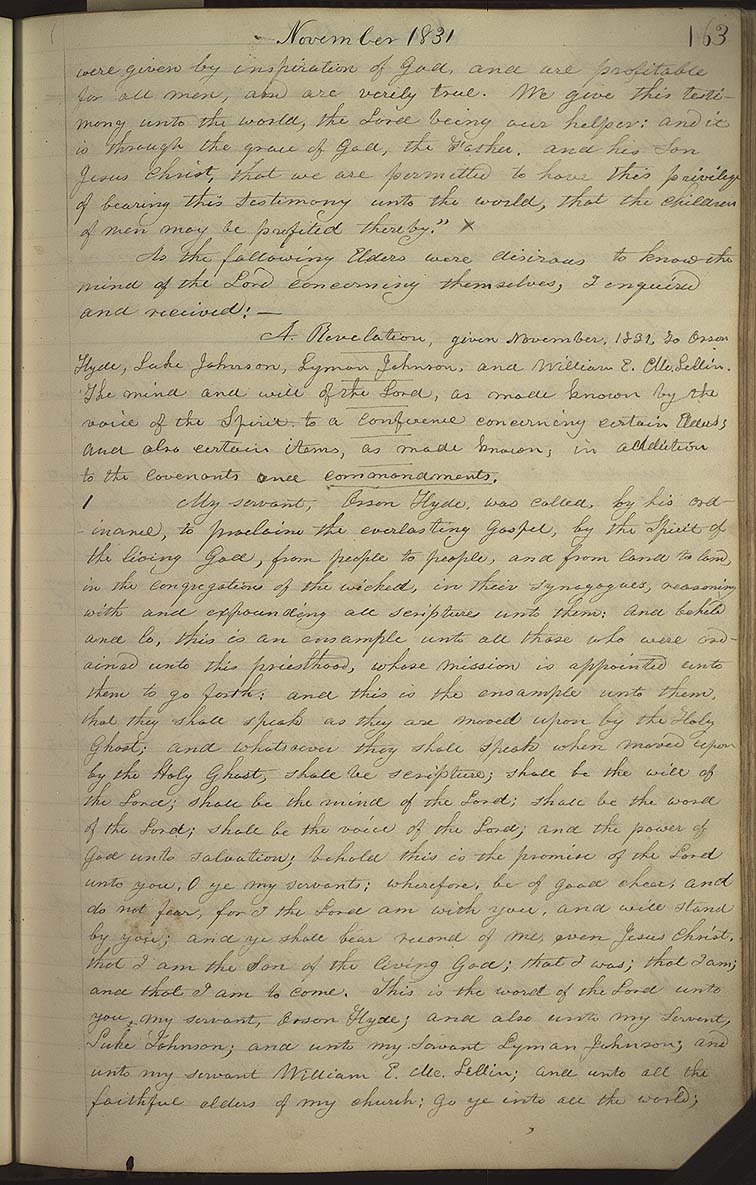 November 1831
163
were given by inspiration of God, and are profitable
for all men, and are verily true. We give this testi-
mony unto the world, the Lord being our helper: and it
is through the grace of God, the Father, and his Son
Jesus Christ, that we are permitted to have this privilege
of bearing this testimony unto the world, that the children
of men may be profited thereby." x
As the following Elders were desirous to know the
mind of the Lord concerning themselves, I enquired
and received:—
A Revelation, given November, 1831, to Orson
Hyde, Luke Johnson, Lyman Johnson, and William E. Mc.Lellin.
The mind and will of the Lord, as made known by the
voice of the Spirit to a conference concerning certain Elders;
and also certain items, as made known, in addition
to the covenants and commandments.
1 My servant, Orson Hyde, was called, by his ord-
-inance, to proclaim the everlasting Gospel, by the Spirit of
the living God, from people to people, and from land to land,
in the congregations of the wicked, in their synagogues, reasoning
with and expounding all scripture unto them: and behold
and lo, this is an ensample unto all those who were ord-
ained unto this priesthood, whose mission is appointed unto
them to go forth: and this is the ensample unto them,
that they shall speak as they are moved upon by the Holy
Ghost; and whatsoever they shall speak when moved upon
by the Holy Ghost, shall be scripture; shall be the will of
the Lord; shall be the mind of the Lord; shall be the word
of the Lord; shall be the voice of the Lord, and the power of
God unto salvation; behold this is the promise of the Lord
unto you, O ye my servants: wherefore, be of good cheer, and
do not fear, for I the Lord am with you, and will stand
by you; and ye shall bear record of me, even Jesus Christ,
that I am the Son of the living God; that I was; that I am;
and that I am to come. This is the word of the Lord unto
you, my servant, Orson Hyde; and also unto my servant,
Luke Johnson; and unto my servant Lyman Johnson; and
unto my servant William E. Mc. Lellin; and unto all the
faithful elders of my church: Go ye into all the world;